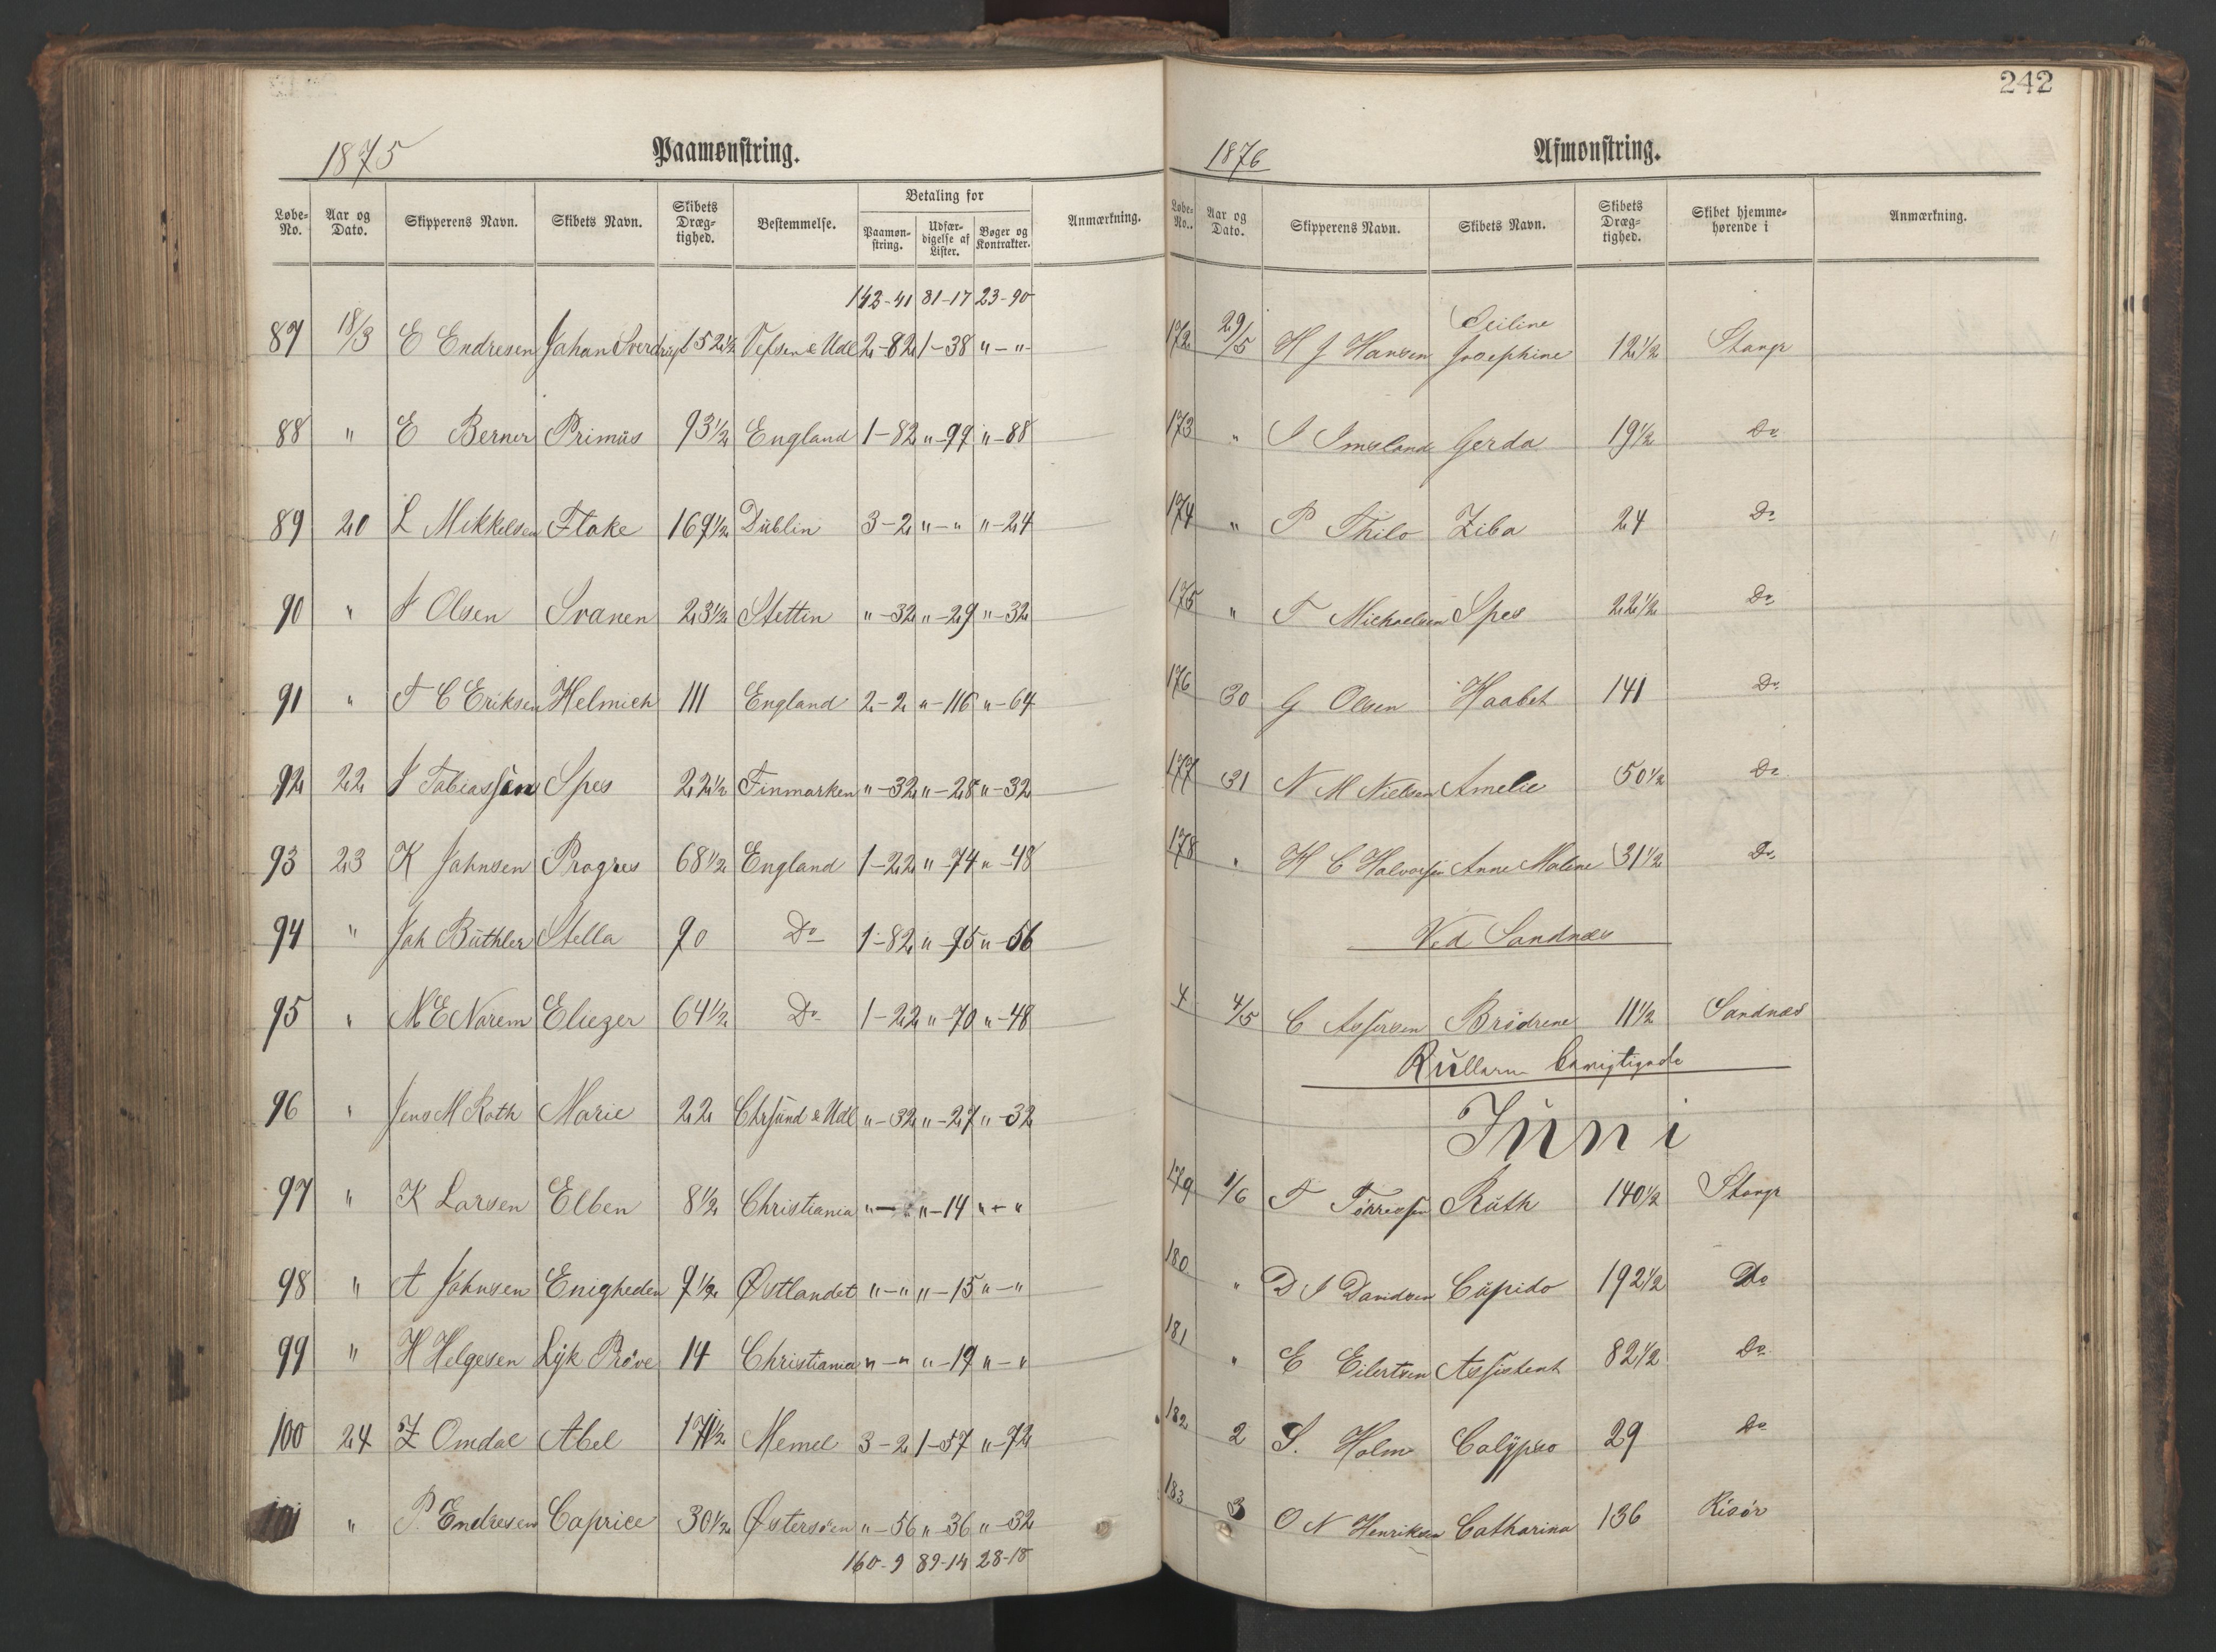 1875 Paamønstring.
Løbe-No. Aar og Dato. Skipperens Navn. Skibets Navn. Skibets Dræg-tighed. Bestemmelse. Betaling for Paamøn-string. Udfær-digelse af Lister. Bøger og Kontrakter. Anmærkning.
142-41 81-17 23-90
87 18/3 E Endresen Johan Sverdrup 152½ Vefsen & Udl 2-82 1-38 "-"
88 " E Berner Primus 93½ England 1-82 "-97 "-88
89 20 L Mikkelsen Floke 169½ Dublin 3-2 "-" "-24
90 " J Olsen Svanen 23½ Stettin "-32 "-29 "-32
91 " T C Eriksen Helmich 111 England 2-2 "-116 "-64
92 22 J Tobiassen Spes 22½ Finmarken "-32 "-28 "-32
93 23 K Johnsen Progres 68½ England 1-22 "-74 "-48
94 " Joh Büthler Stella 90 Do 1-82 "-95 "-56
95 " M E Norem Eliezer 64½ Do 1-22 "-70 "-48
96 " Jens M Roth Marie 22 Chrsund & Udl "-32 "-27 "-32
97 " K Larsen Elben 8½ Christiania "-" "-14 "-"
98 " A Johnsen Enigheden 9½ Østlandet "-" "-15 "-"
99 " H Helgesen Lyk Prøve 14 Christiania "-" "-19 "-"
100 24 Z Omdal Abel 171½ Memel 3-2 1-57 "-72
101 " P. Endresen Caprice 30½ Østersøen "-56 "-36 "-32
160-9 89-14 28-18
242
1876 Afmønstring.
Løbe-No. Aar og Dato. Skipperens Navn. Skibets Navn. Skibets Dræg-tighed. Skibet hjemme-hørende i Anmærkning.
172 29/5 H J Hansen Seiline Josephine 12½ Stangr
173 " I Imsland Gerda 19½ Do
174 " P Thilo Ziba 24 Do
175 " T Michaelsen Spes 22½ Do
176 30 G Olsen Haabet 141 Do
177 31 N M Nielsen Amelie 50½ Do
178 " H C Halvorsen Anne Malene 31½ Do
Ved Sandnæs
4 4/5 C Assersen Brödrene 11½ Sandnæs
Rullerne
Juni
179 1/6 T Törresen Ruth 140½ Stangr
180 " D J Davidsen Cupido 192½ Do
181 " E Eilertsen Assistent 82½ Do
182 2 S. Holm Calypso 29 Do
183 3 O N Henriksen Catharina 136 Risör